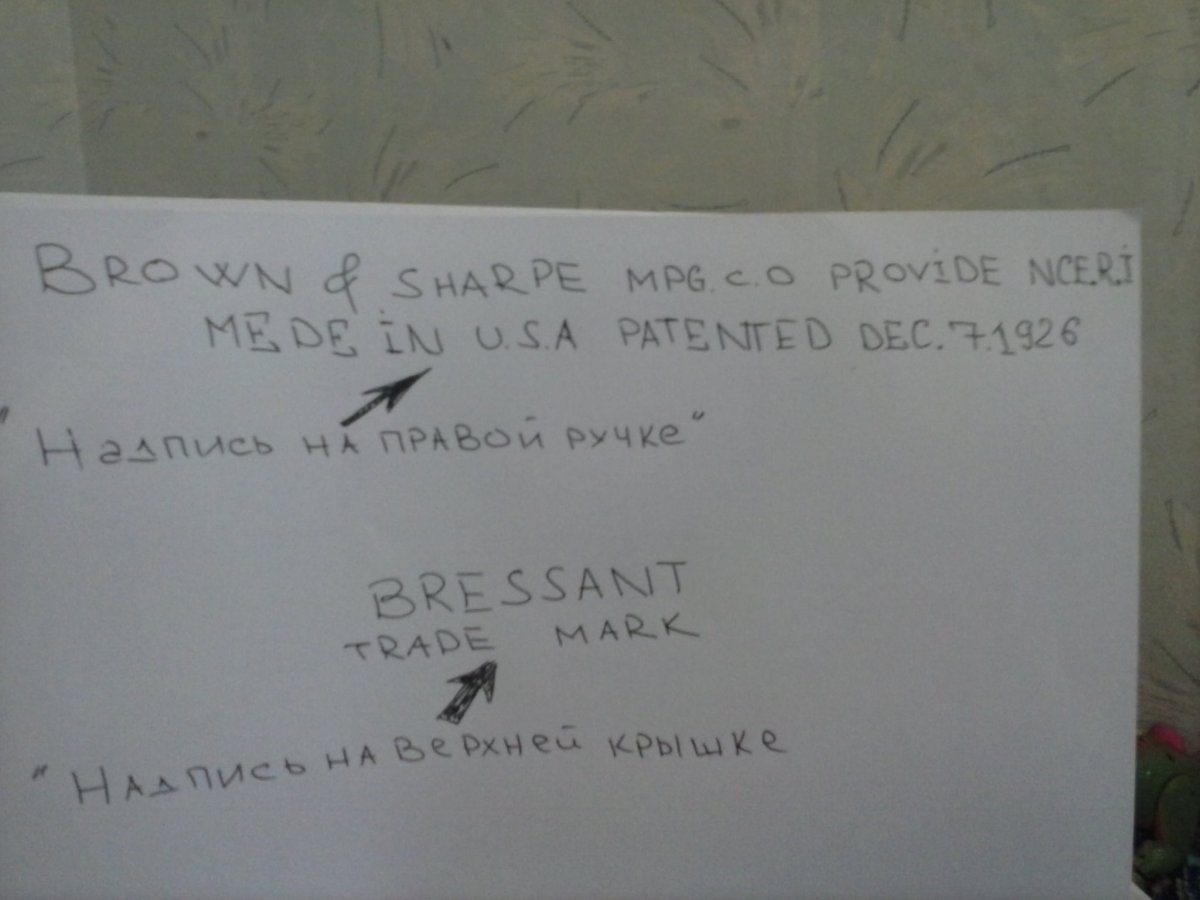 BROWN & SHARPE MPG. C.O PROVIDE NCE.R.I
MEDE IN U.S.A PATENTED DEC. 7.1926
"Надпись на правой ручке"
BRESSANT
TRADE MARK
"Надпись на верхней крышке